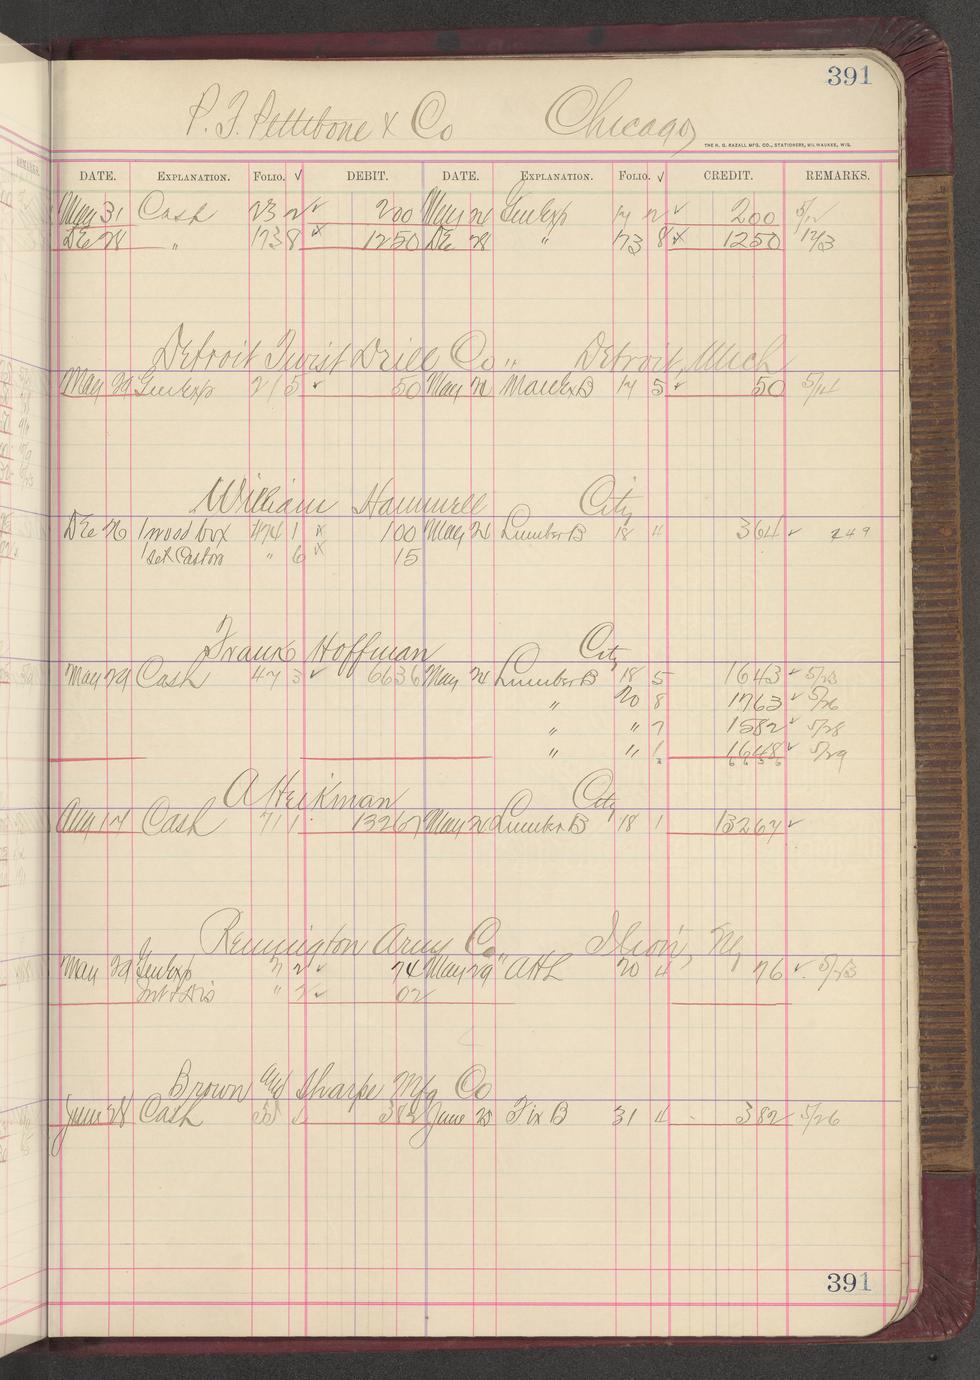 391
P. F. Pettibone & Co Chicago
THE H. G. RAZALL MFG. CO., STATIONERS, MILWAUKEE, WIS.
DATE. EXPLANATION. FOLIO. √ DEBIT. DATE. EXPLANATION. FOLIO. √ CREDIT. REMARKS.
May 31 Cash 23 2 ✓ 200 May 21 Genl Exp 17 2 ✓ 200 5/12
DE 28 " 173 8 x 1250 DE 28 " 173 8 x 1250 12/3
Detroit Twist Drill Co " Detroit, Mich
May 29 Genl Exp 21 5 ✓ 50 May 21 17 5 ✓ 50 5/14
William Hammell City
DE 26 1 wood box 474 1 x 100 May 21 Lumber B 18 4 364 ✓ 249
1 Set Castors " 6 x 15
Frank Hoffman City
May 29 Cash 47 3 ✓ 6636 May 21 Lumber B 18 5 1643 ✓ 5/23
" 20 8 1763 ✓ 5/26
" " 7 1582 ✓ 5/28
" " 1 1648 ✓ 5/29
6636
A Heikman City
Aug 14 Cash 71 1 13267 May 21 Lumber B 18 1 13267 ✓
Remington Arms Co. Ilion, Ny
May 29 Genl Exp 2 ✓ 74 May 29 " A H L 20 4 76 ✓ 5/23
Int & Dis " 02
Brown and Sharpe Mfg Co
June 28 Cash 35 382 June 25 Fix B 31 4 - 382 5/26
391